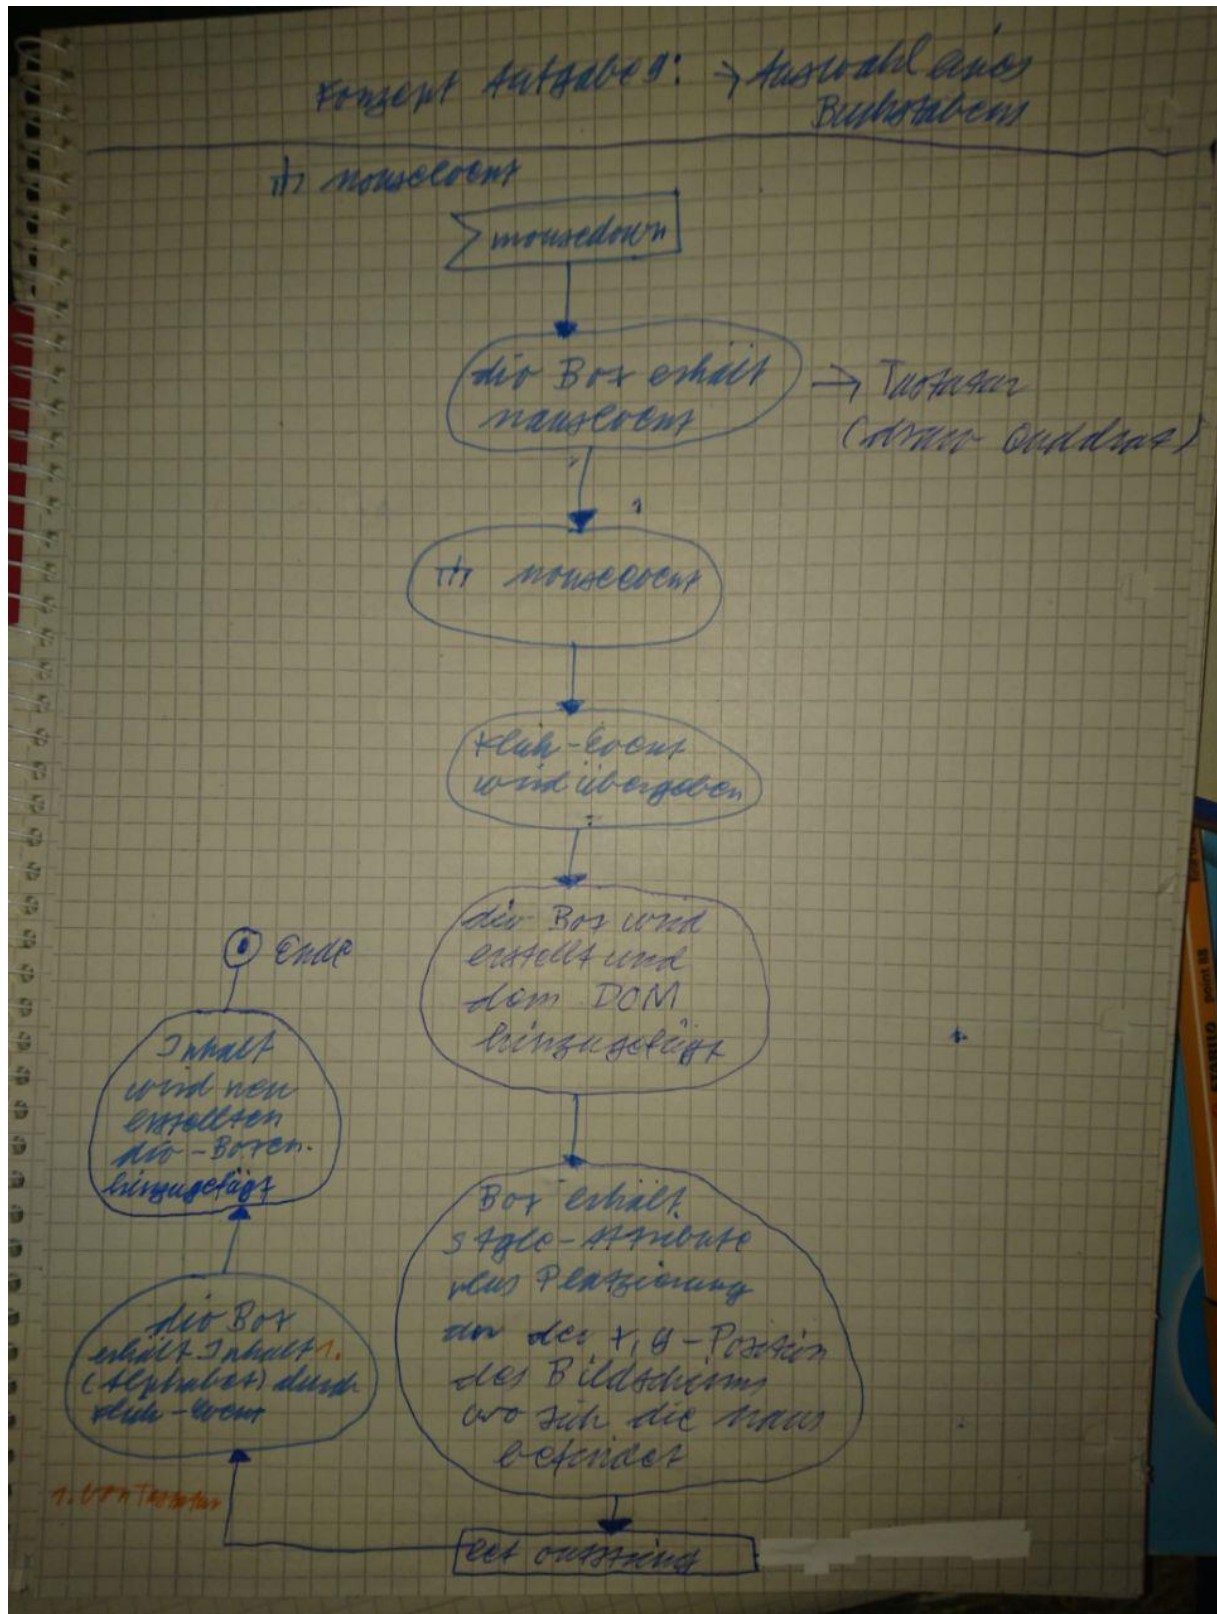 Konzept Aufgabe 9: → Auswahl eines
Buchstabens
mouseevent
mousedown
div Box erhält
mausevent
→ Tastatur
(draw Quadrat)
mouseevent
Klick-Event
wird übergeben
div Box wird
erstellt und
dem DOM
hinzugefügt
Box erhält
style-Attribute
plus Platzierung
an der x, y-Position
des Bildschirms
wo sich die Maus
befindet
let outstring
div Box
erhält Inhalt 1.
(Alphabet) durch
Klick-Event
1. von Tastatur
Inhalt
wird neu
erstellten
div-Boxen
hinzugefügt
Ende